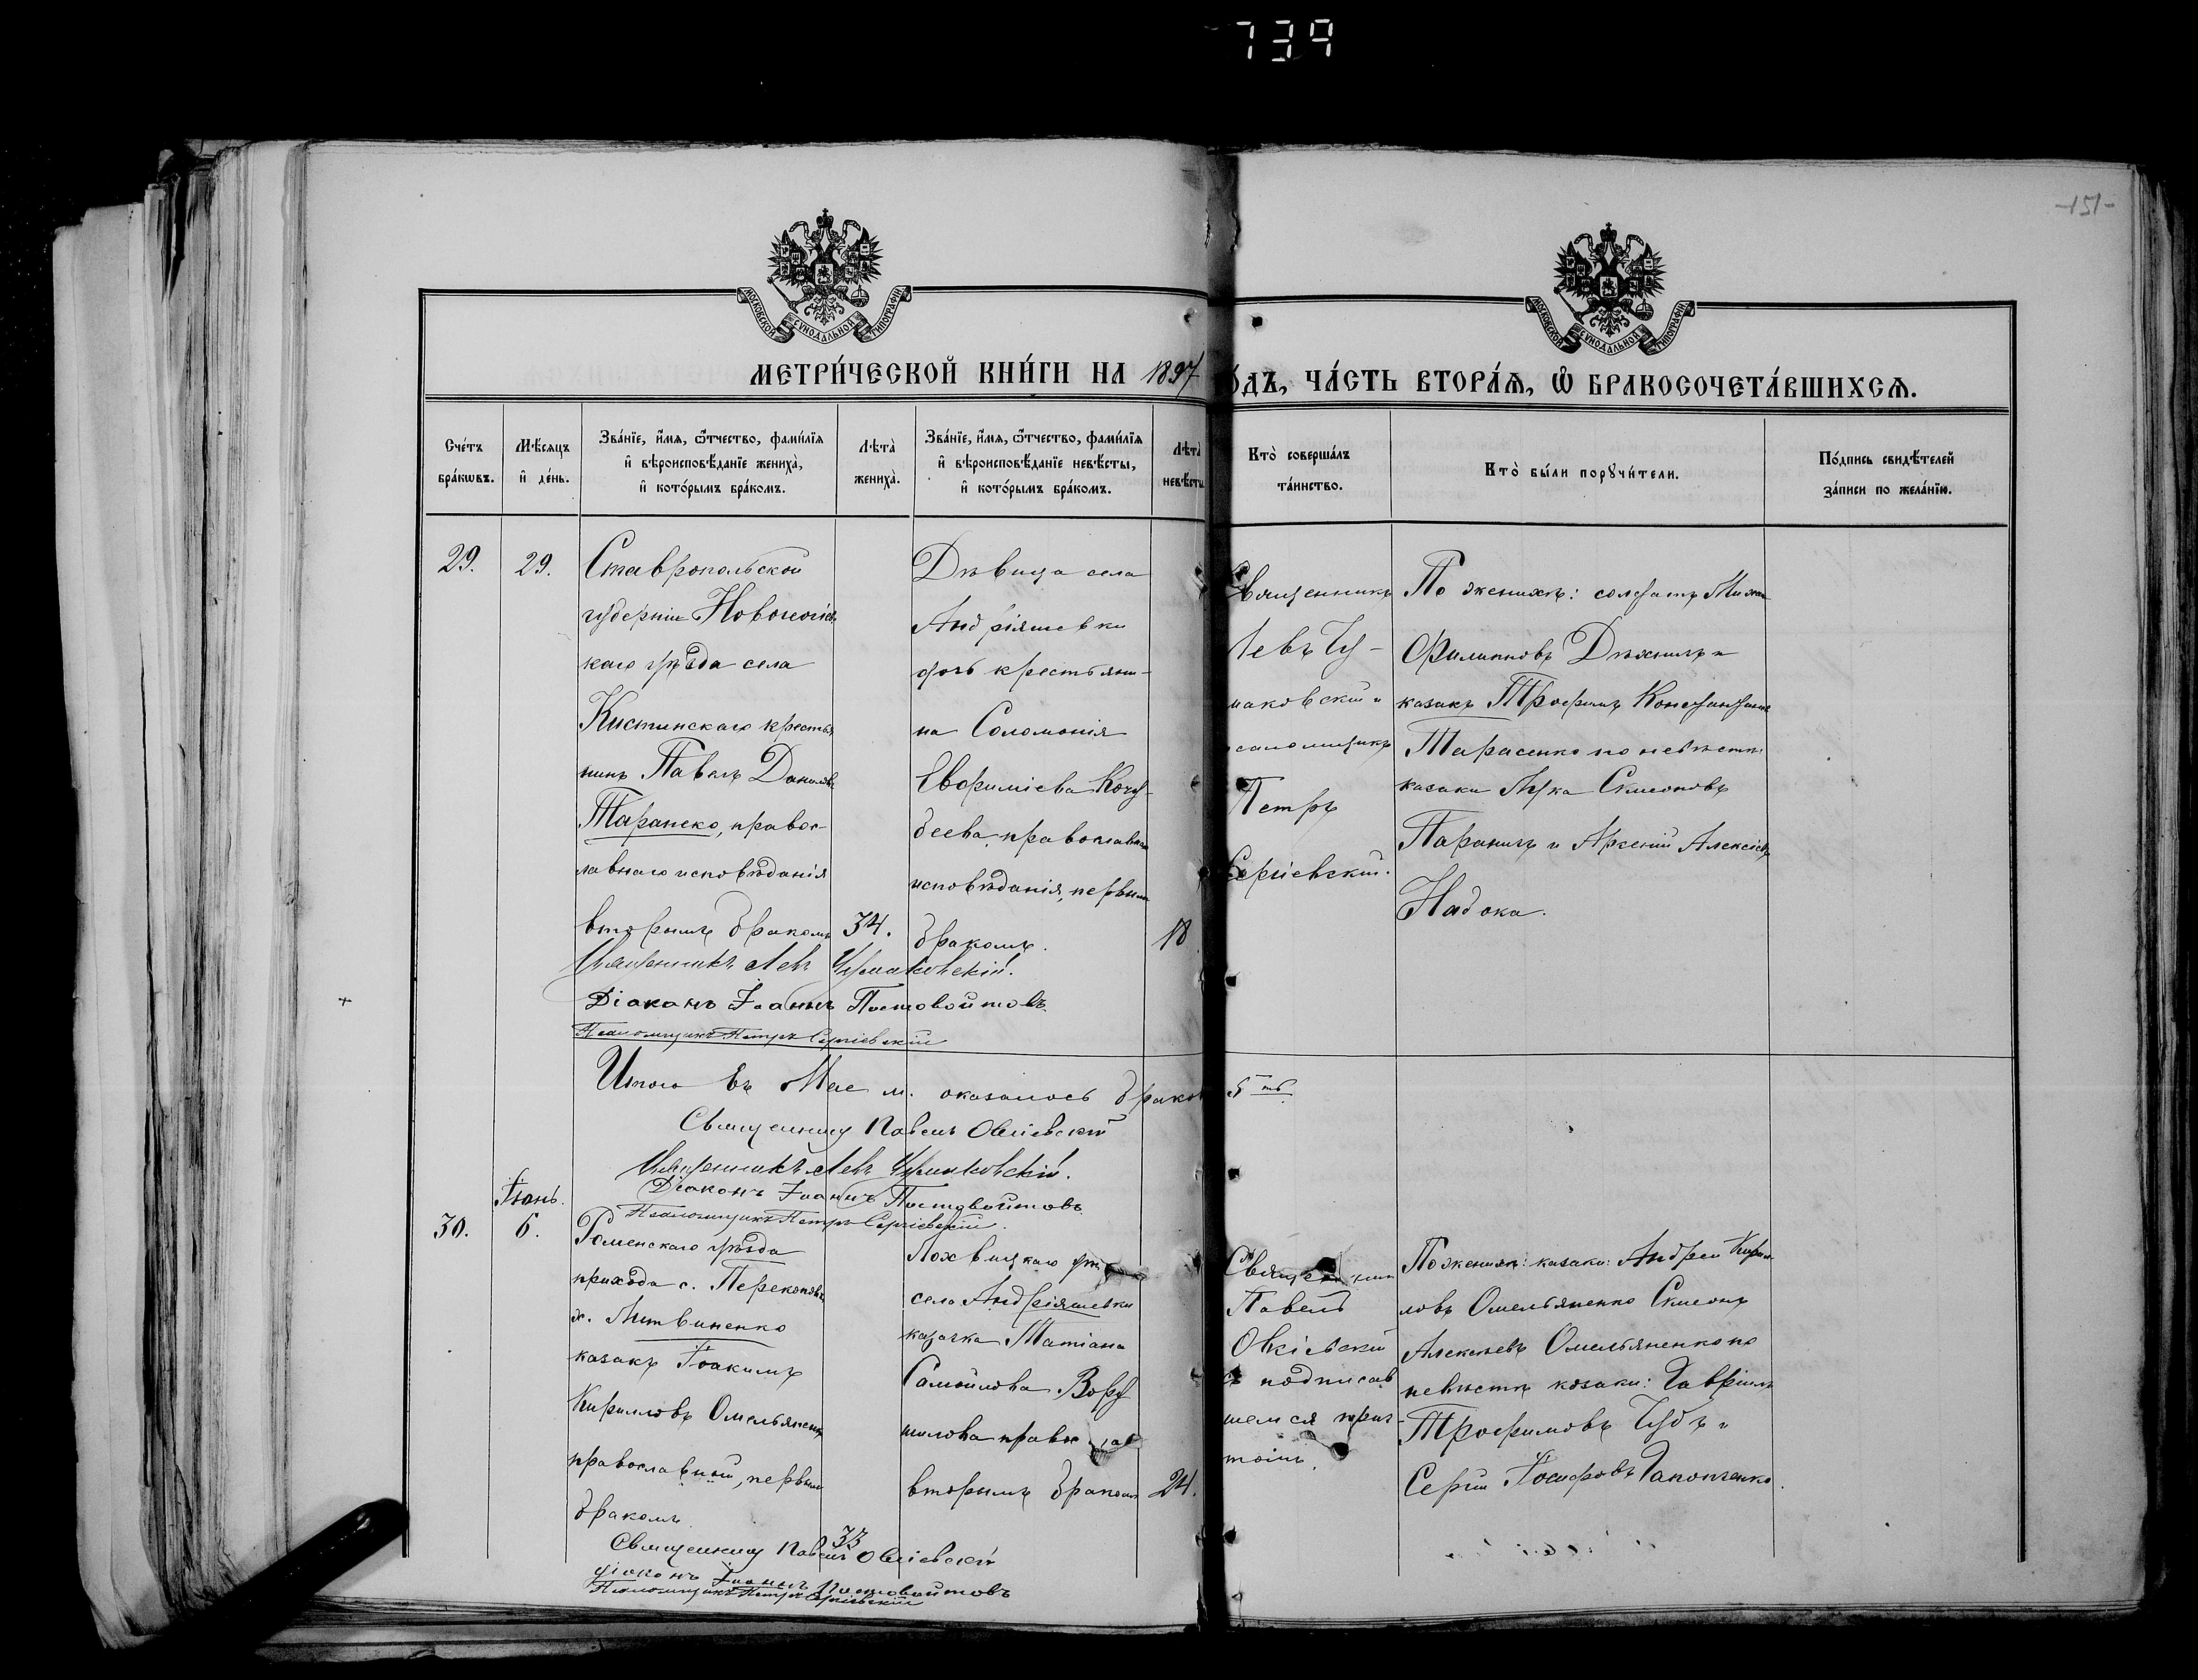 739
-151-
МОСКОВСКОЙ СѴНОДАЛЬНОЙ ТИПОГРАФІИ
МОСКОВСКОЙ СѴНОДАЛЬНОЙ ТИПОГРАФІИ
МЕТРИ́ЧЕСКОЙ КНИ́ГИ НА 1897
О́ДЪ, ЧА́СТЬ ВТОРА́Я, Ѿ БРАКОСОЧЕТА́ВШИХСЯ.
Сче́тъ
бра́кѡвъ.
Мѣ́сяцъ
и҆ де́нь.
Зва́нїе, и҆́мя, ѻ҆́тчество, фами́лїя
и҆ вѣроисповѣ́данїе жениха̀,
и҆ кото́рымъ бра́комъ.
Лѣта̀
жениха̀.
Зва́нїе, и҆́мя, ѻ҆́тчество, фами́лїя
и҆ вѣроисповѣ́данїе невѣ́сты,
и҆ кото́рымъ бра́комъ.
Лѣта̀
невѣ́сты
Кто̀ соверша́лъ
та́инство.
Кто̀ бы́ли порꙋчи́тели.
По́дпись свидѣ́телей
за́писи по жела́нїю.
29.
29.
Ставропольской
губерніи
каго уѣзда села
Кистинскаго крестья
нинъ Павелъ Даниловъ
Таранеко, правос-
лавнаго исповѣданія
вторымъ бракомъ
34.
Дѣвица села
Андріяшевки
дочь крестьяни-
на Соломонія
Евфиміева Кочу-
беева, православнаго
исповѣданія, первымъ
бракомъ.
18
Священникъ
Левъ Чу-
маковскій и
псаломщикъ
Петръ
Сергіевскій.
По женихѣ: солдатъ
Филипповъ и
казакъ Трофимъ
Тарасенко по невѣстѣ
казаки Лука Симеоновъ
Параничъ и Арсеній Алексіевъ
Надока.
Священникъ Левъ Чумаковскій.
Діаконъ Іоаннъ Постовойтовъ
Псаломщикъ Петръ Сергіевскій
Итого въ Мае м. оказалось браковъ 5ть
Священникъ Павелъ Овсіевскій
Священникъ Левъ Чумаковскій.
Діаконъ Іоаннъ Постовойтовъ
Псаломщикъ Петръ Сергіевскій.
Іюнь.
30.
6.
Роменскаго уѣзда
прихода с. Перекоповки
х. Литвиненко
казакъ Іоакимъ
Кирилловъ Омельяненко
православной, первымъ
бракомъ
33
Лохвицкаго
села Андріяшевки
казачка Татіана
Самойлова Вору
шилова
вторымъ бракомъ
24.
Священникъ
Павелъ
Овсіевскій
съ подписав
шемся прич-
томъ.
По женихѣ: казаки: Андрей Кирил
ловъ Омельяненко Симеонъ
Алексѣевъ Омельяненко по
невѣстѣ козаки: Гавріилъ
Трофимовъ Чубъ и
Сергій Іосифовъ Гапонченко.
Священникъ Павелъ Овсіевскій
діаконъ Іоаннъ Постовойтовъ
Псаломщикъ Петръ Сергіевскій